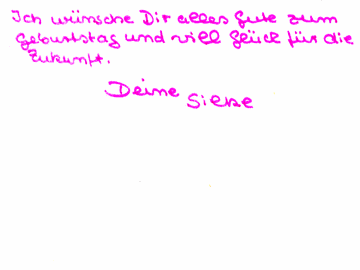 Ich wünsche Dir alles Gute zum
Geburtstag und viel Glück für die
Zukunft.
Deine